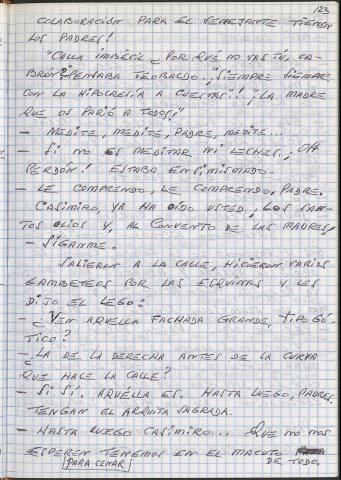 123
COLABORACIÓN PARA EL SEMEJANTE TIENEN
LOS PADRES!
"CALLA IMBÉCIL ¿POR QUÉ NO VAS TÚ, CA-
BRÓN?" PENSABA TEOBALDO. ¡"SIEMPRE SIEMPRE
CON LA HIPOCRESÍA A CUESTAS"! "¡LA MADRE
QUE OS PARIÓ A TODOS!"
- MEDITE, MEDITE, PADRE, MEDITE...
- SI NO ES MEDITAR NI LECHES, ¡OH
PERDÓN! ESTABA ENSIMISMADO.
- LE COMPRENDO, LE COMPRENDO, PADRE.
CASIMIRO, YA HA OÍDO USTED, ¡LOS SAN-
TOS OLIOS Y, AL CONVENTO DE LAS MADRES!
- SÍGANME.
SALIERON A LA CALLE, HICIERON VARIOS
GAMBETEOS POR LAS ESQUINAS Y LES
DIJO EL LEGO:
- ¿VEN AQUELLA FACHADA GRANDE, TIPO GÓ-
TICO?
- ¿LA DE LA DERECHA ANTES DE LA CURVA
QUE HACE LA CALLE?
- SI SÍ. AQUÉLLA ES. HASTA LUEGO, PADRES.
TENGAN EL ARQUITA SAGRADA.
- HASTA LUEGO CASIMIRO... QUE NO NOS
ESPEREN TENEMOS EN EL MACUTO DE TODO.
PARA CENAR